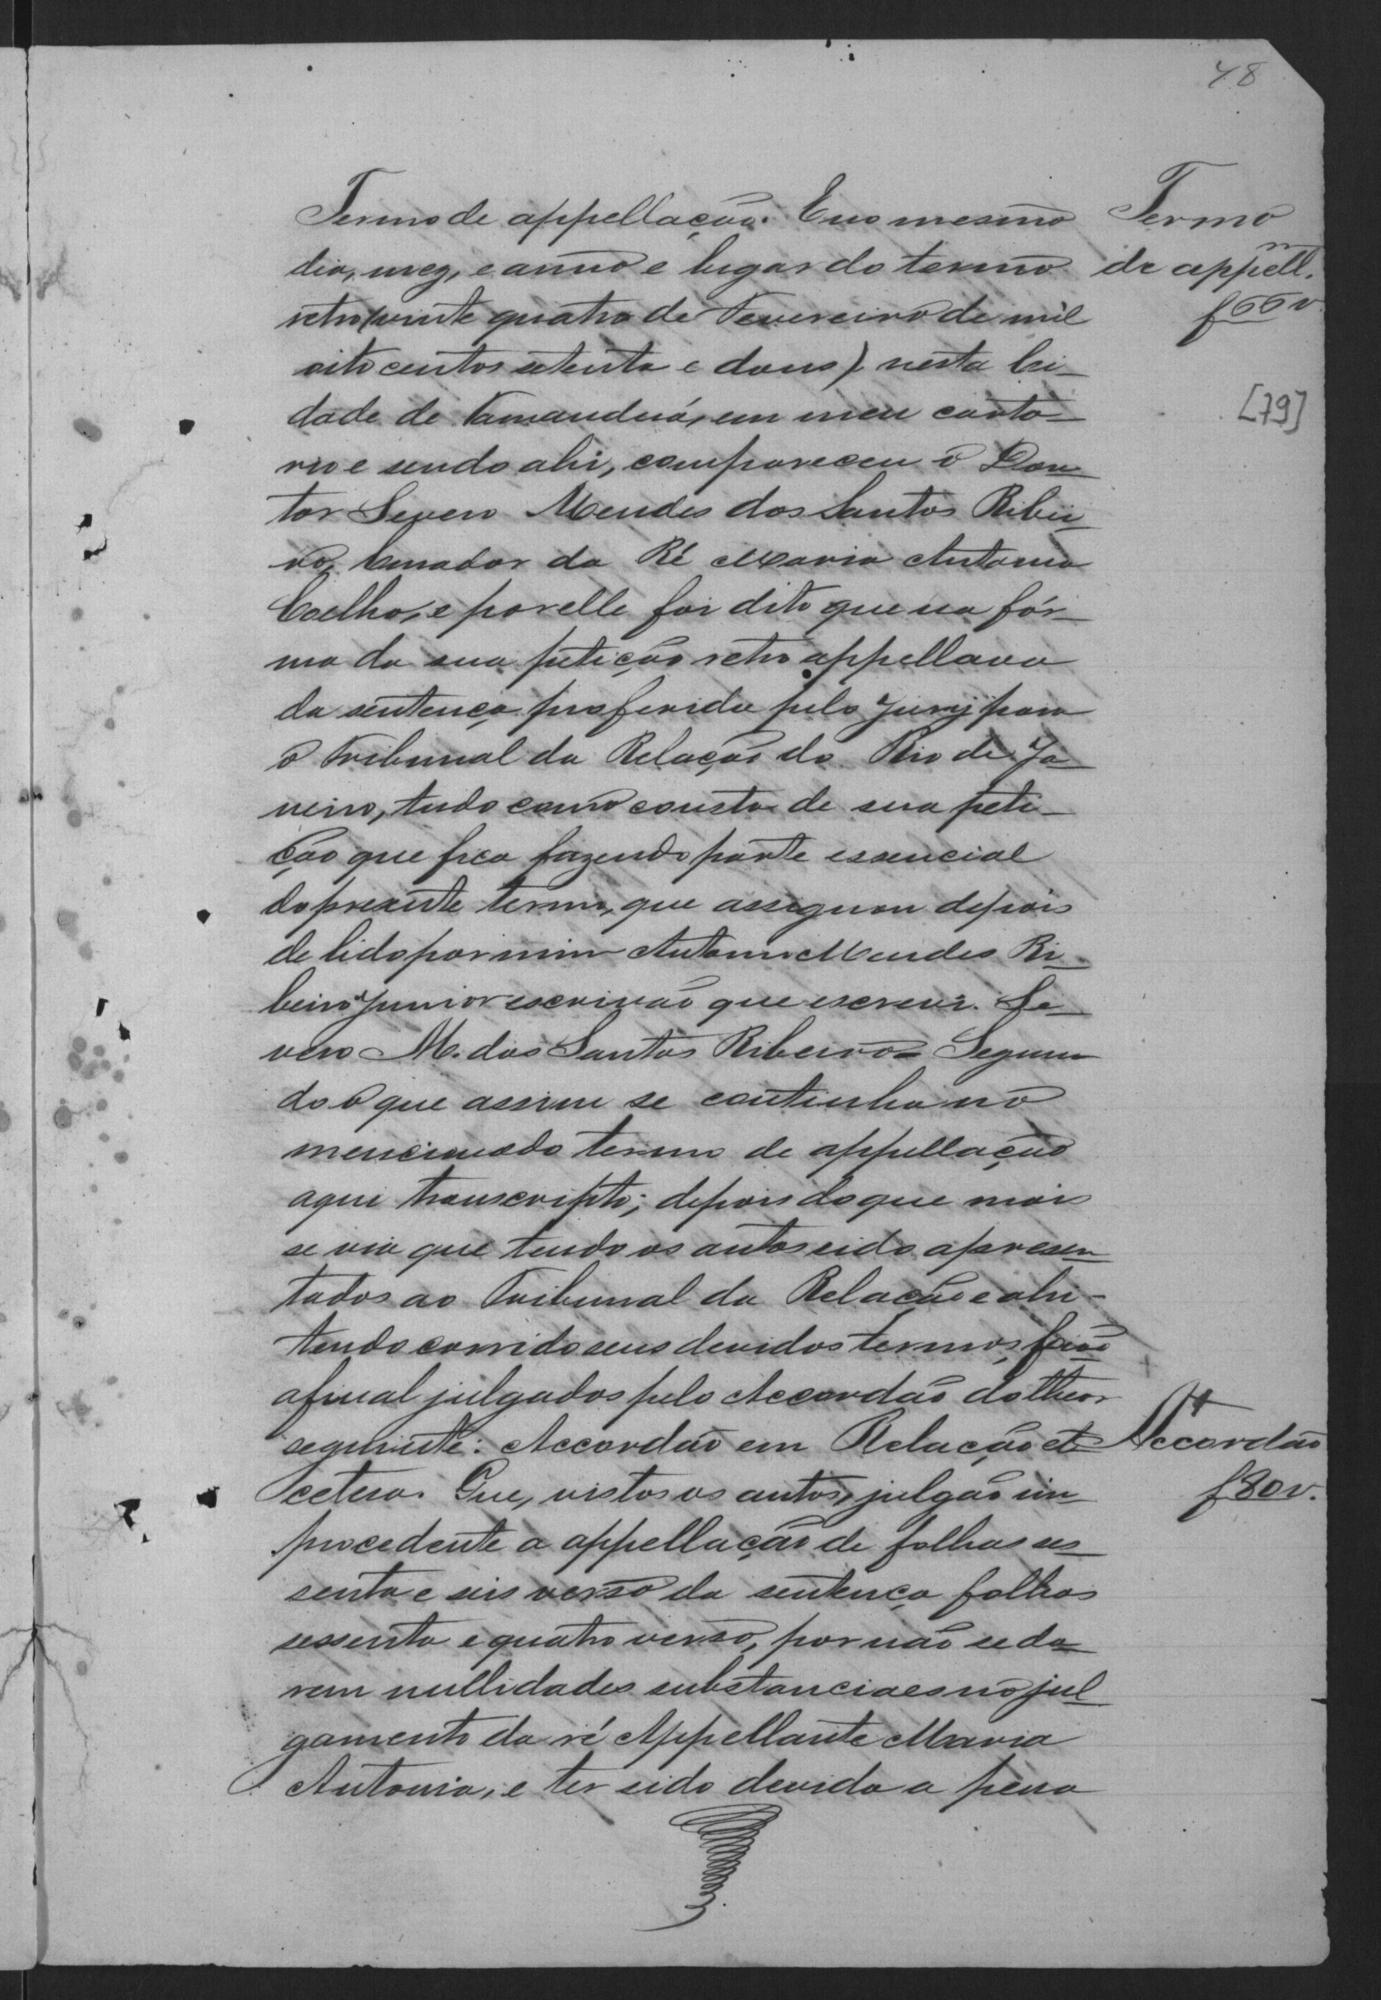 48
Termo de appellação. E no mesmo
dia, mez, e anno e lugar do termo
retro (vinte quatro de Fevereiro de mil
oito centos setenta e dous) nesta Ci-
dade de Tamanduá, em meu carto-
rio e sendo ahi, compareceu o Dou-
tor Severo Mendes dos Santos Ribei-
ro, Curador da Ré Maria Antonia
Coelha, e por elle foi dito que na fór-
ma da sua petição retro appellava
da sentença proferida pelo Jury para
o Tribunal da Relação do Rio de Ja-
neiro, tudo como consta de sua peti-
ção que fica fazendo parte essencial
do presente termo, que assignou depois
de lido por mim Antonio Mendes Ri-
beiro Junior escrivão que escrevi. Se-
vero M. dos Santos Ribeiro = Segun-
do o que assim se continha no
mencionado termo de appellação
aqui transcripto; depois do que mais
se via que tendo os autos sido apresen-
tados ao Tribunal da Relação e ahi-
tendo corrido seus devidos termos, forão
afinal julgados pelo Accordão do theor
seguinte: Accordão em Relação et
cetera. Que, vistos os autos, julgão im-
procedente a appellação de folhas ses-
senta e seis verso da sentença folhas
sessenta e quatro verso, por não se da-
rem nullidades substanciaes no jul-
gamento da ré Appellante Maria
Antonia, e ter sido devida a pena
Termo
de appell.m
f 66 v
[79]
Accordão
f 80 v.